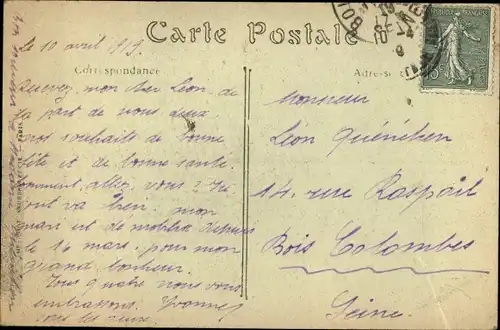 Carte Postale
Correspondance
Adresse
le 10 avril 1919
Recevez, mon cher Léon, de
la part de nous deux
nos souhaits de bonne
fête et de bonne santé.
Comment allez vous? Ici
tout va bien. mon
mari est de mobilisé depuis
le 16 mars, pour mon
grand bonheur.
Tous quatre nous vous
embrassons. Yvonne
tous les deux.
Monsieur
Léon Quénéhen
14. rue Raspail
Bois Colombes
Seine.